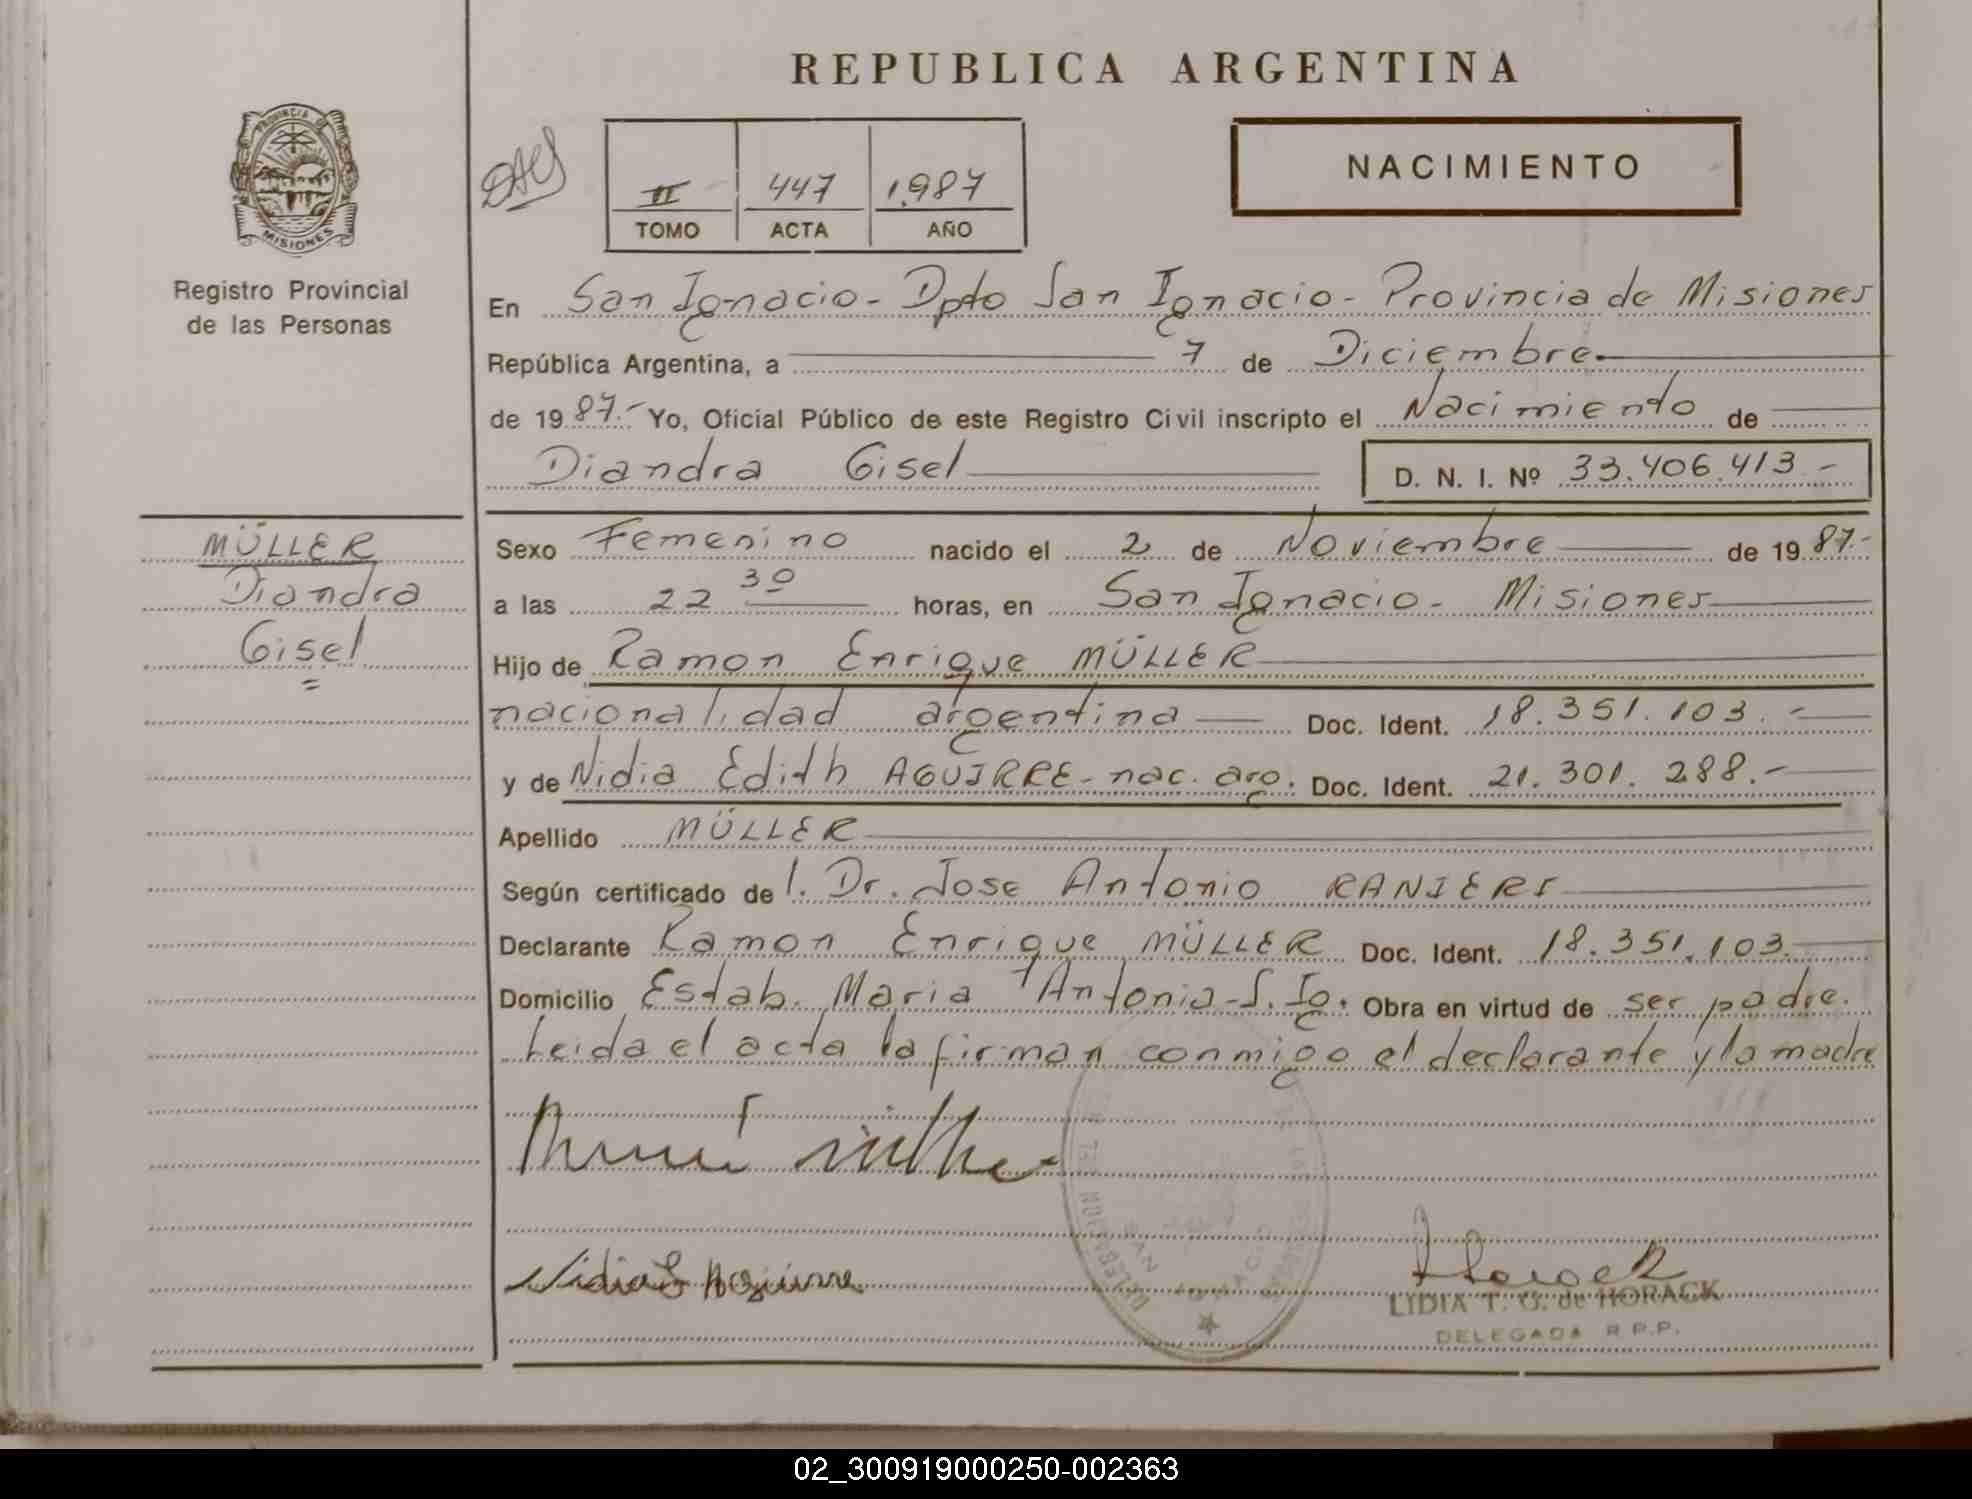 REPUBLICA ARGENTINA
PROVINCIA DE
MISIONES
Registro Provincial
de las Personas
II 447 1.987
TOMO ACTA AÑO
NACIMIENTO
En San Ignacio - Dpto San Ignacio - Provincia de Misiones
República Argentina, a 7 de Diciembre.
de 19 87.- Yo, Oficial Público de este Registro Civil inscripto el Nacimiento de
Diandra Gisel D. N. I. Nº 33.406.413.-
MÜLLER
Diandra
Gisel
Sexo Femenino nacido el 2 de Noviembre de 19 87.-
a las 22 30 horas, en San Ignacio - Misiones
Hijo de Ramon Enrique MÜLLER
nacionalidad argentina Doc. Ident. 18.351.103.-
y de Nidia Edith AGUIRRE - nac. arg. Doc. Ident. 21.301.288.-
Apellido MÜLLER
Según certificado de l. Dr. Jose Antonio RANIERI
Declarante Ramon Enrique MÜLLER Doc. Ident. 18.351.103.
Domicilio Estab. Maria Antonia - S. Ig. Obra en virtud de ser padre.
Leida el acta la firman conmigo el declarante y la madre
Nidia E Aguirre
SAN IGNACIO
LIDIA T. G. de HORACK
DELEGADA R.P.P.
02_300919000250-002363